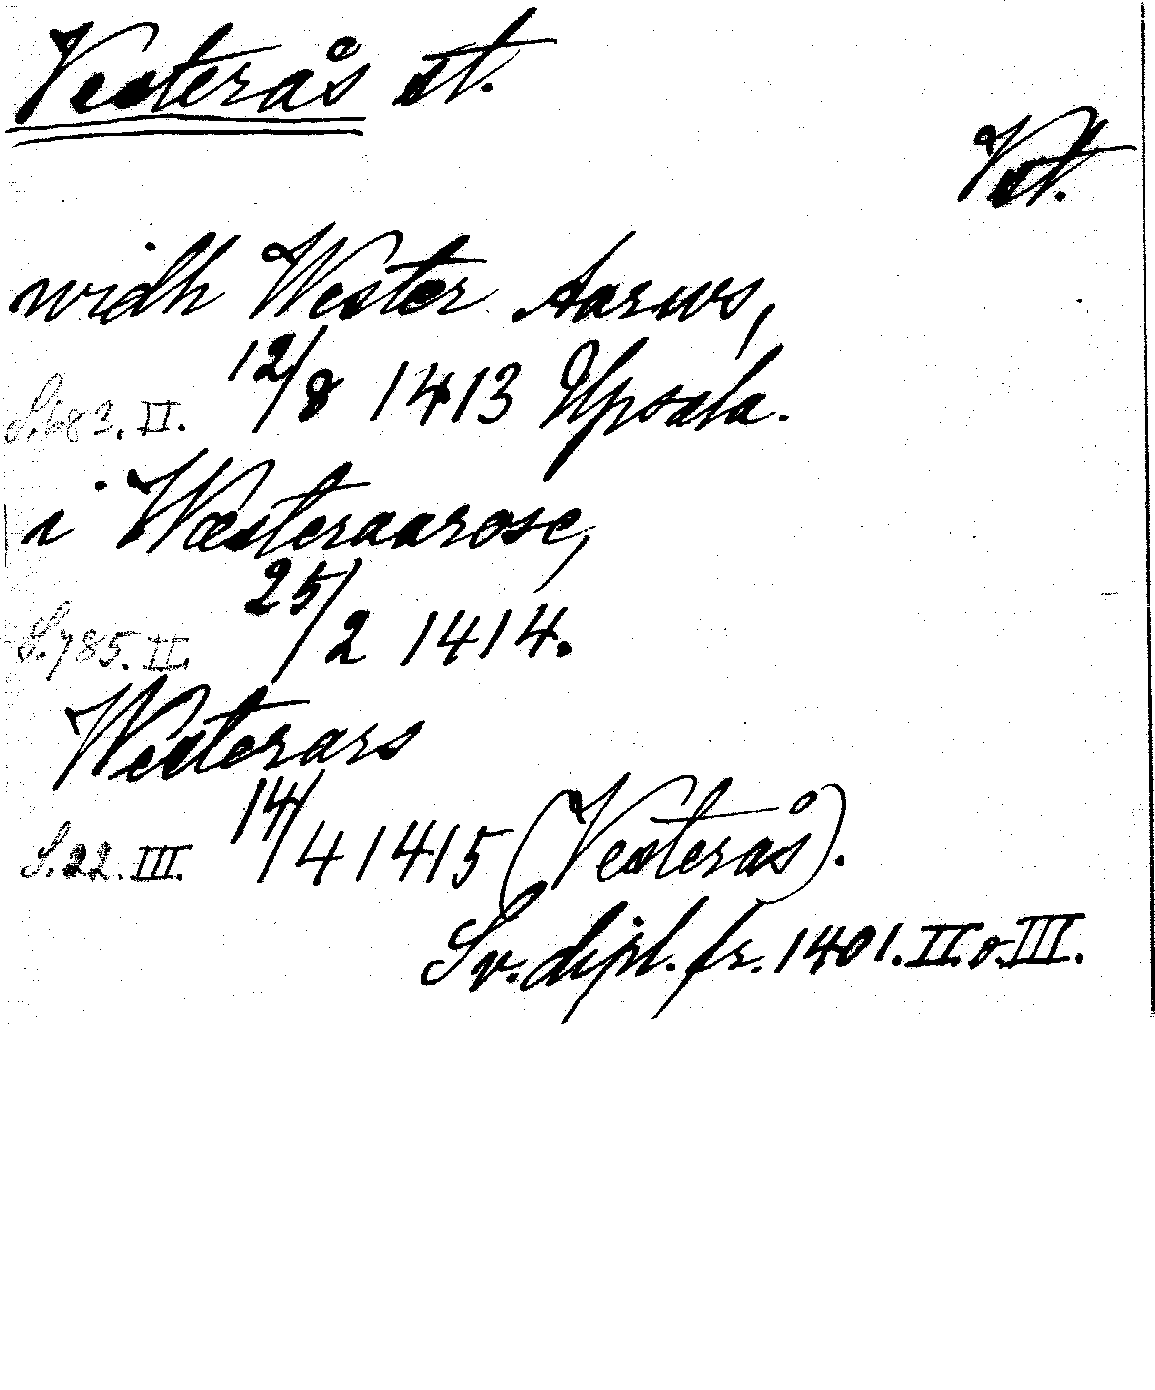 Vesterås st.
Vst.
widh Wester Aarws,
S. 683. II. 12/8 1413 Upsala.
i Wæsteraarose,
S. 785. II. 25/2 1414.
Westerars
S. 22. III. 14/4 1415 (Vesterås).
Sv. dipl. fr. 1401. II. o. III.